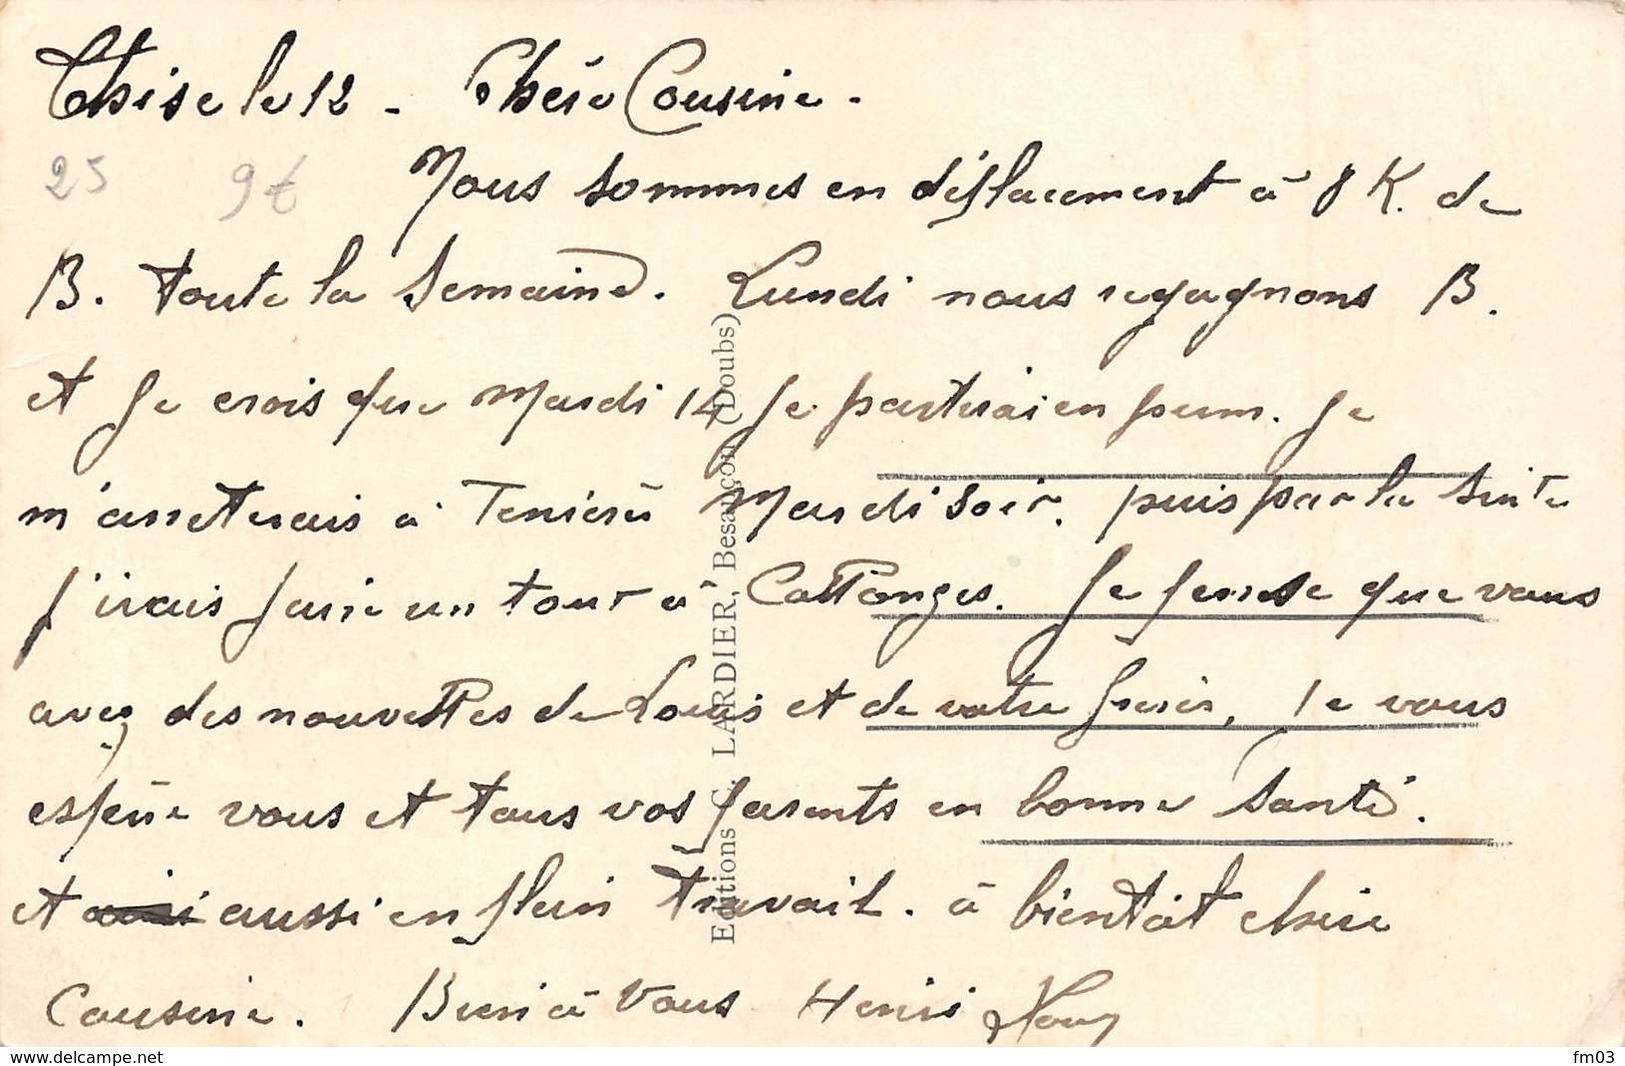 Thise le 12 - Chère Cousine -
25 9€
Nous sommes en déplacement à 8 K. de
B. toute la Semaine. Lundi nous regagnons B.
et je crois que Mardi 14 je partirai en perm. je
m'arreterais à Mardi soir. puis par la suite
j'irais faire un tour à Collonges. Je pense que vous
avez des nouvelles de Louis et de votre frère, Je vous
espère vous et tous vos parents en bonne Santé.
et aussi en plein Travail. à bientôt chère
Cousine. Bien à Vous Henri
Editions C. LARDIER, Besançon (Doubs)
www.delcampe.net
fm03